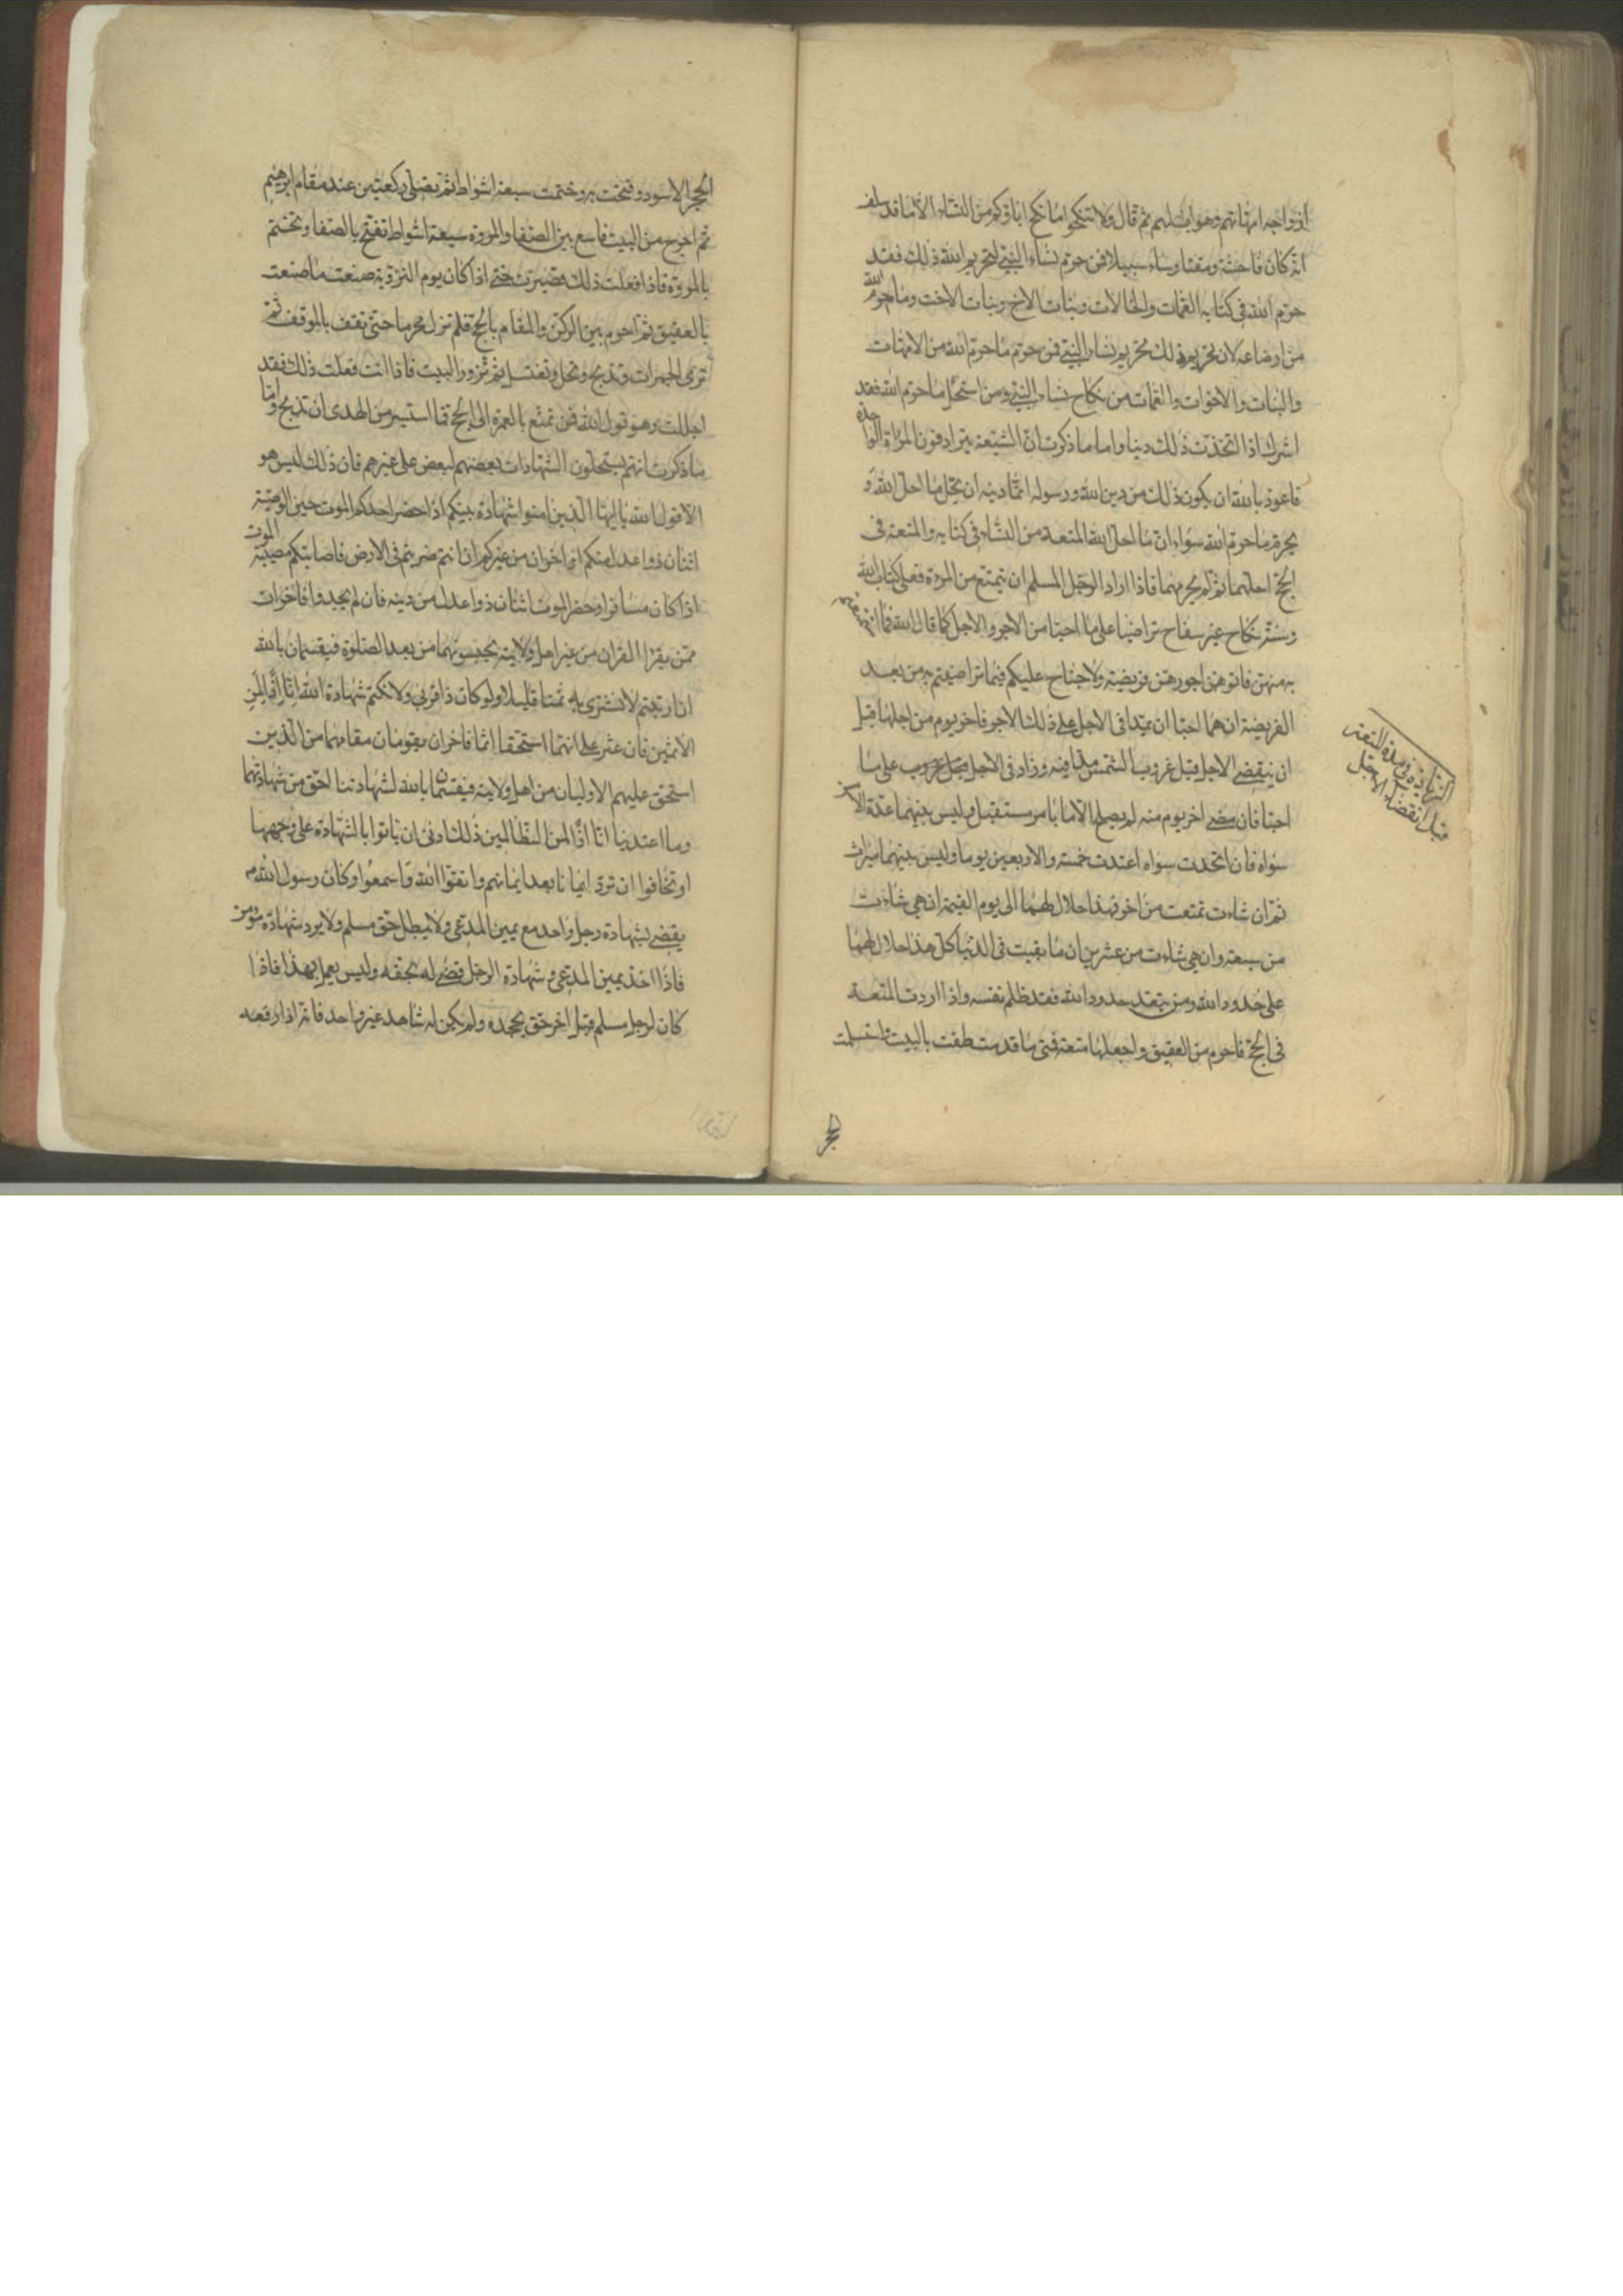 ازواجه امهاتهم وهو اب لهم ثم قال ولا تنكحوا ما نكح اباؤكم من النساء الا ما قد سلف
انه كان فاحشة ومقتا وساء سبيلا فمن حرم نساء النبي لتحريم الله ذلك فقد
حرم الله في كتابه العمات والخالات وبنات الاخ وبنات الاخت وما حرم الله
من ارضاعه لان تحريم ذلك تحريم نساء النبي فمن حرم ما حرم الله من الامهات
والبنات والاخوات والعمات من نكاح نساء النبي ومن استحل ما حرم الله فقد
اشرك اذا اتخذت ذلك دينا واما ما ذكرت ان الشيعة يترادفون المراة الواحدة
فاعوذ بالله ان يكون ذلك من دين الله ورسوله انما دينه ان يحل ما احل الله و
يحرم ما حرم الله سواء ان مما احل الله المتعة من النساء في كتابه والمتعة في
الحج احلهما ثم لم يحرمهما فاذا اراد الرجل المسلم ان يتمتع من المرءة فعلى كتاب الله
وسنته نكاح غير سفاح تراضيا على ما احبا من الاجر والاجل كما قال الله فما استمتعتم
به منهن فاتوهن اجورهن فريضة ولا جناح عليكم فيما تراضيتم به من بعد
الفريضة ان هما احبا ان يمدا في الاجل على ذلك الاجر فاخر يوم من اجلها قبل
ان ينقضي الاجل قبل غروب الشمس مدا فيه وزاد في الاجل على ما
احبا فان مضى اخر يوم منه لم يصلح الا بامر مستقبل وليس بينهما عدة الا من
سواه فان اتحدت سواه اعتدت خمسة والاربعين يوما وليس بينهما ميراث
ثم ان شاءت تمتعت من اخر فهذا حلال لهما الى يوم القيمة ان هي شاءت
من سبعة وان هي شاءت من عشرين ان ما بقيت في الدنيا كل هذا حلال لهما
على حدود الله ومن يتعد حدود الله فقد ظلم نفسه واذا اردت المتعة
في الحج فاحرم من العقيق واجعلها متعة فمتى ما قدمت طفت بالبيت واستلمت
الزيادة في مدة المتعة
قبل انقضاء الاجل
الحجر
الحجر الاسود وفتحت به وختمت سبعة اشواط ثم تصلي ركعتين عند مقام ابرهيم
ثم اخرج من البيت فاسع بين الصفا والمروة سبعة اشواط تفتح بالصفا وتختم
بالمروة فاذا فعلت ذلك قصرت حتى اذا كان يوم التروية صنعت ما صنعت
بالعقيق ثم احرم بين الركن والمقام بالحج فلم تزل محرما حتى تقف بالموقف ثم
ترمي الجمرات وتذبح وتحل وتغتسل ثم تزور البيت فاذا انت فعلت ذلك فقد
احللت وهو قول الله فمن تمتع بالعمرة الى الحج فما استيسر من الهدى ان تذبح واما
ما ذكرت انهم يستحلون الشهادات بعضهم لبعض على غيرهم فان ذلك ليس هو
الا قول الله يا ايها الذين امنوا شهادة بينكم اذا حضر احدكم الموت حين الوصية
اثنان ذوا عدل منكم او اخران من غيركم ان انتم ضربتم في الارض فاصابتكم مصيبة الموت
اذا كان مسافرا وحضر الموت اثنان ذوا عدل من دينه فان لم يجدوا فاخران
ممن يقرا القران من غير اهل ولايته تحبسونهما من بعد الصلوة فيقسمان بالله
ان ارتبتم لا نشتري به ثمنا قليلا ولو كان ذا قربى ولا نكتم شهادة الله انا اذا لمن
الاثمين فان عثر على انهما استحقا اثما فاخران يقومان مقامهما من الذين
استحق عليهم الاوليان من اهل ولايته فيقسمان بالله لشهادتنا احق من شهادتهما
وما اعتدينا انا اذا لمن الظالمين ذلك ادنى ان ياتوا بالشهادة على وجهها
او تخافوا ان ترد ايمانا بعد ايمانهم واتقوا الله واسمعوا وكان رسول الله ص
يقضي بشهادة رجل واحد مع يمين المدعي ولا يبطل حق مسلم ولا يرد شهادة مؤمن
فاذا اخذ يمين المدعي وشهادة الرجل قضى له بحقه وليس يعمل بهذا فاذا
كان لرجل مسلم قبل اخر حق يجحده ولم يكن له شاهد غير واحد فانه اذا رفعه